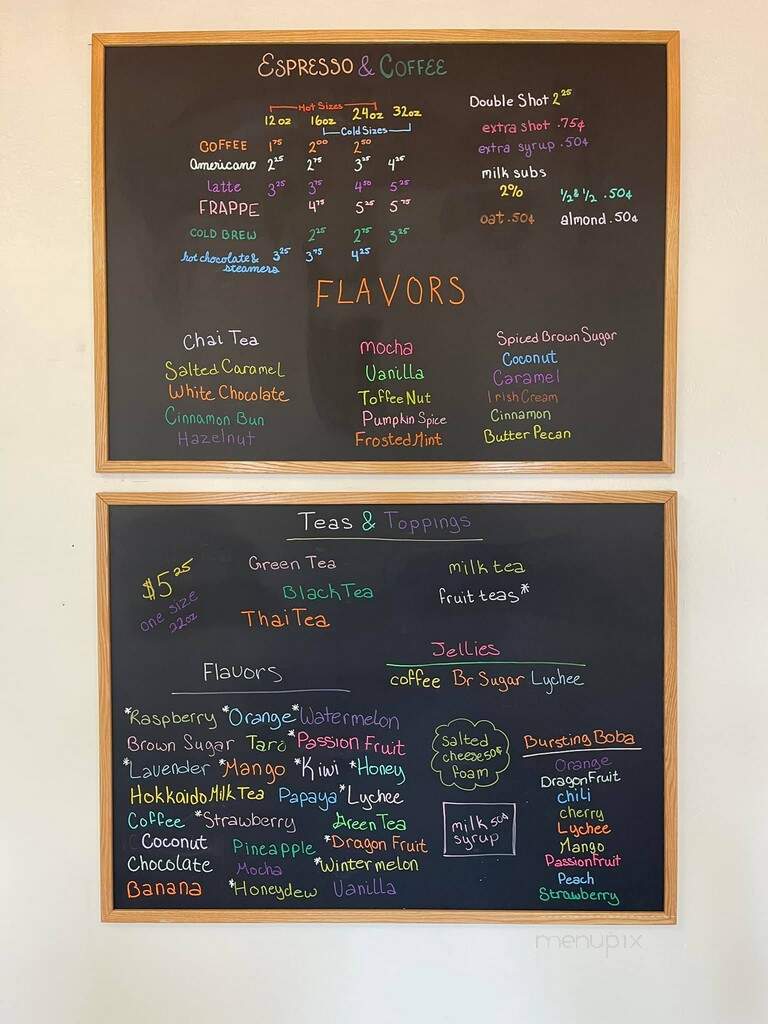 ESPRESSO & COFFEE
Hot Sizes
12oz 16oz 24oz 32oz
Cold Sizes
COFFEE 1.75 2.00 2.50
Americano 2.25 2.75 3.25 4.25
latte 3.25 3.75 4.50 5.25
FRAPPE 4.75 5.25 5.75
COLD BREW 2.25 2.75 3.25
hot chocolate & steamers 3.25 3.75 4.25
Double Shot 2.25
extra shot .75¢
extra syrup .50¢
milk subs
2% ½ & ½ .50¢
oat .50¢ almond .50¢
FLAVORS
Chai Tea
Salted Caramel
White Chocolate
Cinnamon Bun
Hazelnut
mocha
Vanilla
Toffee Nut
Pumpkin Spice
Frosted Mint
Spiced Brown Sugar
Coconut
Caramel
Irish Cream
Cinnamon
Butter Pecan
Teas & Toppings
$5.25
one size
22oz
Green Tea
Black Tea
Thai Tea
milk tea
fruit teas*
Flavors
*Raspberry *Orange *Watermelon
Brown Sugar Taro *Passion Fruit
*Lavender *Mango *Kiwi *Honey
Hokkaido Milk Tea Papaya *Lychee
Coffee *Strawberry Green Tea
Coconut Pineapple *Dragon Fruit
Chocolate Mocha *Wintermelon
Banana *Honeydew Vanilla
Jellies
coffee Br Sugar Lychee
salted
cheese 50¢
foam
milk 50¢
syrup
Bursting Boba
Orange
DragonFruit
chili
cherry
Lychee
Mango
PassionFruit
Peach
Strawberry
menupix